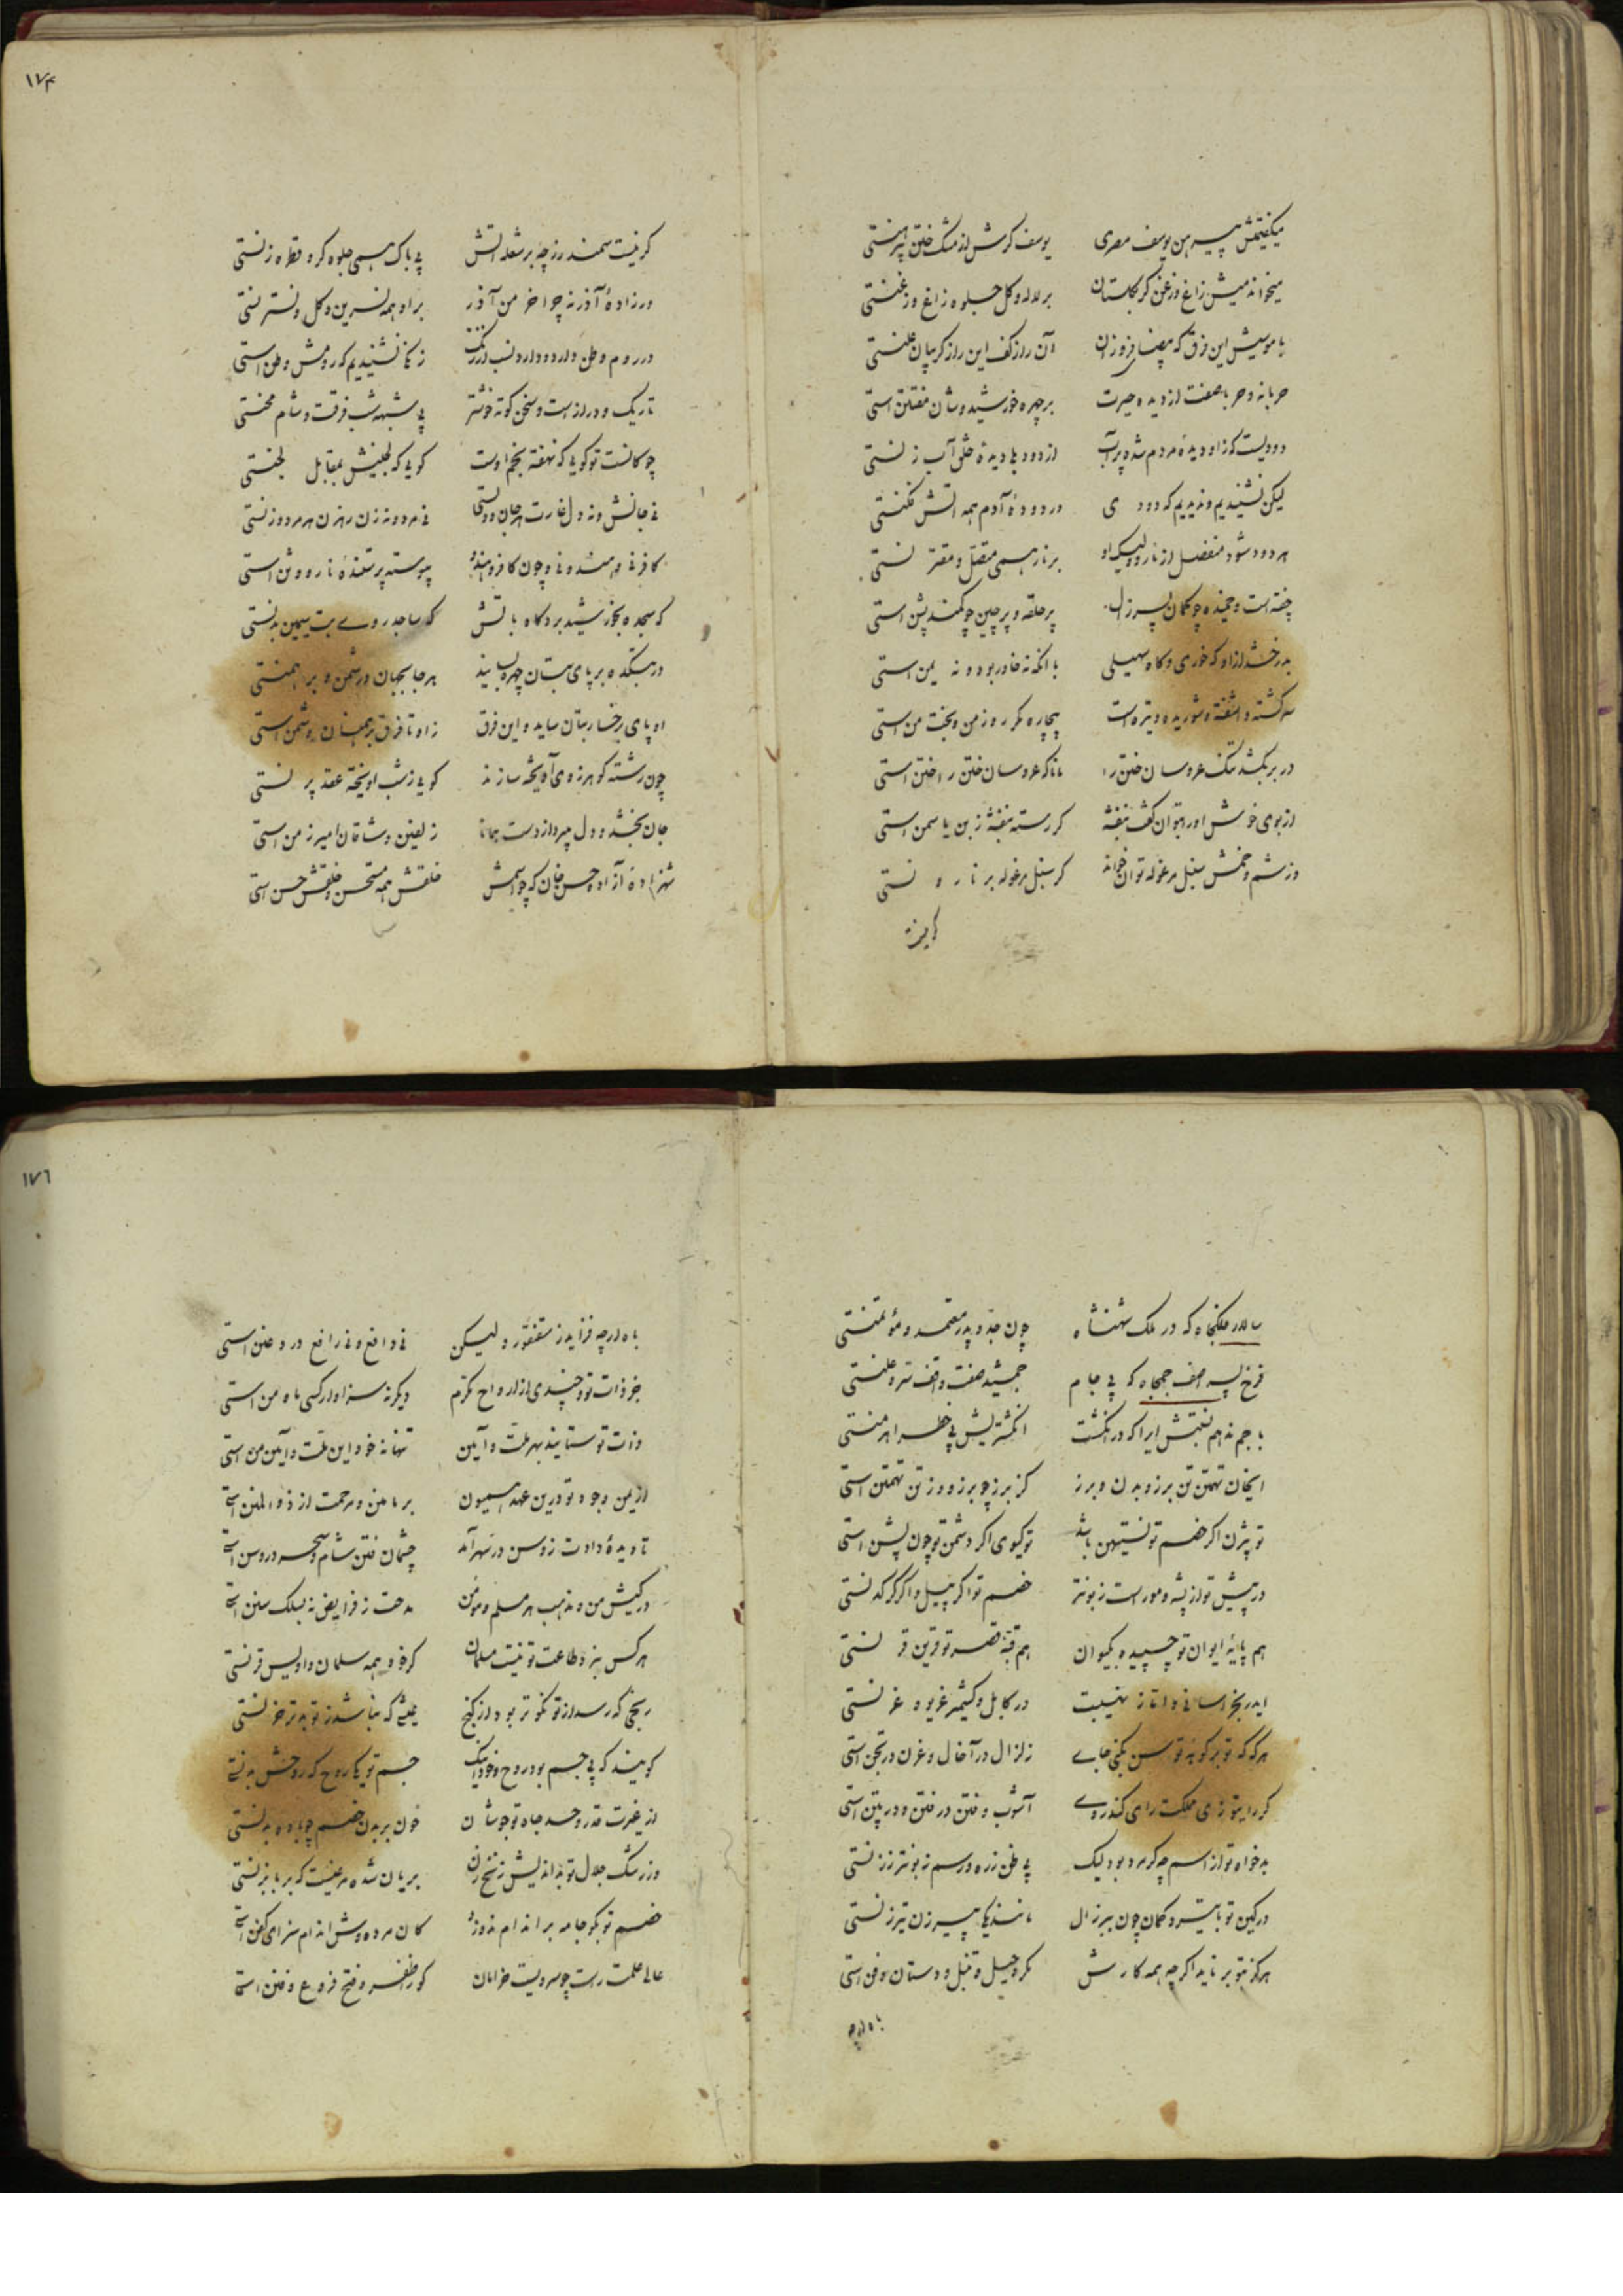 میگفتمش پیرهن یوسف مصری یوسف گرش از مشک ختن پیرهنستی
میخواندمیش زاغ و زغن گر بگلستان بر لاله و گل جلوه زاغ و زغنستی
با موسیش این فرق که بیضا فروزان آن راز کف این راز گریبان علنستی
حربا نه و حربا صفت از دیده حیرت بر چهره خورشیدوشان مفتتن استی
دودیست کزاو دیده مردم شده پرآب از دود بلا دیده خلق آب زنستی
لیکن نشنیدیم و ندیدیم که دودی در دوده آدم همه آتش فکنستی
هر دود شود منفصل از نار ولیک او بر نار همی متصل و مقترنستی
خفته است و خمیده چو کمان پسر زال پر حلقه و پر چین چو کمند پشن استی
بدرخشد از او گه خوری و گاه سهیلی با آنکه نه خاور بود و نه یمن استی
سرگشته و آشفته و شوریده و تیره است بیچاره مگر روز من و بخت من استی
در بر بکشد تنگ عروسان ختن را مانا که عروسان ختن را ختن استی
از بوی خوش او را بتوان گفت بنفشه گر رسته بنفشه ز بن یاسمن استی
وز شم و خمش سنبل مرغوله توان خواند گر سنبل مرغوله بر نارونستی
گر نیست
۱۷۴
گر نیست سمندر ز چه بر شعله آتش بی باک همی جلوه گر و قطره زنستی
ور زاده آذر نه چرا خرمن آذر بر او همه نسرین و گل و نسترنستی
در روم وطن دارد و دارد نسب از زنگ زنگی نشنیدیم که رومش وطن استی
تاریک و دراز است و سخن کوته خوشتر بی شبهه شب فرقت و شام محنستی
چوگانست تو گویی که نهفته بخم اوست گویی که لجینش بمقابل لجنستی
نی جانش و نه دل غارت هر جان و دلستی نی مرد و نه زن رهزن هر مرد و زنستی
کافر نی و هندو نی و چون کافر و هندو پیوسته پرستنده نار و وثن استی
گه سجده بخورشید برد گاه بآتش گه ساجد روی بت سیمین بدنستی
در بتکده بر پای بتان چهره بساید هر جا بجهان در شمن و برهمنستی
او پای بر رخسار بتان ساید و این فرق زاو تا فرق برهمنان و شمن استی
چون رشته گوهر ز وی آویخته سازند گویی ز شب آویخته عقد پرنستی
جان بخشد و دل میبرد از دست همانا زلفین وشاقان امیر زمن استی
شهزاده آزاده حسن خان که چو اسمش خلقش همه مستحسن و خلقش حسن استی
سالار ملکجاه که در ملک شهنشاه چون جد و پدر معتمد و مؤتمنستی
فرخ پسر آصف جمجاه که بی جام جمشید صفت واقف سر و علنستی
با جم نه اهم نسبتش ایرا که در انگشت انگشتریش بی خطر اهرمنستی
ایخان تهمتن تن برز و بدن و برز کز برز چو برزو و ز تن تهمتن استی
تو بیژن اگر خصم تو نستیهن باشد تو گیوی اگر دشمن تو چون پشن استی
در پیش تو از پشه و مور است زبونتر خصم تو اگر پیل و اگر کرگدنستی
هم پایه ایوان تو چسبیده بکیوان هم قبه قصر تو قرین قرنستی
ایدر بخراسانی و آنان ز نهیبت در کابل و کشمیر غریو و غرنستی
هر گه که تو بر کوهه توسن بکنی جای زلزال در آفاق و غرن در دجن استی
گر رایتو زی مملکت رای کند روی آشوب و فتن در ختن و در پتن استی
بدخواه تو از اسم چه گر مرد بود لیک بی ظن زره و رسم زبونتر ز زنستی
در کین تو با تیر و کمان چون پیر زال مانند یکی پیرزن تیرزنستی
هرگز بتو بر ناید اگر چه همه کارش مکر و حیل و تنبل و دستان و فن استی
باه ارچه
۱۷۶
باه ارچه فزاید ز سقنقور ولیکن نی دافع و نی رافع درد عنن استی
جز ذات تو و چندی از ارواح مکرم دیگر نه سزاوار کسی مدح من استی
ذات تو ستایند بهر ملت و آیین تنها نه خود این ملت و آیین من استی
از یمن وجود تو درین عهد همیون بر ما من و مرحمت از ذوالمنن استی
تا دیده دادت ز وسن در سهر آمد چشمان فتن شام و سحر در وسن استی
در کیش من و مذهب هر مسلم و مؤمن مدحت ز فرایض نه بسلک سنن استی
هر کس بنزد طاعت تو نیست مسلمان گر خود همه سلمان و اویس قرنستی
رنجی که رسد از تو نکوتر بود از گنج عیشی که نباشد ز تو بدتر ز حزنستی
گویند که بی جسم بود روح و خود اینک جسم تو یکی روح که روحش بدنستی
از غیرت قدر و حسد جاه تو جوشان خون بر بدن خصم چو باده بدنستی
وز رشک جلال تو بداندیش زنخ زن بریان شده مرغیست که بر بابزنستی
خصم تو بگو جامه بر اندام ندوزد کان مرده وش اندام سزای کفن استی
عالی علمت راست چو سرویست خرامان کو را ظفر و فتح فروع و فنن استی